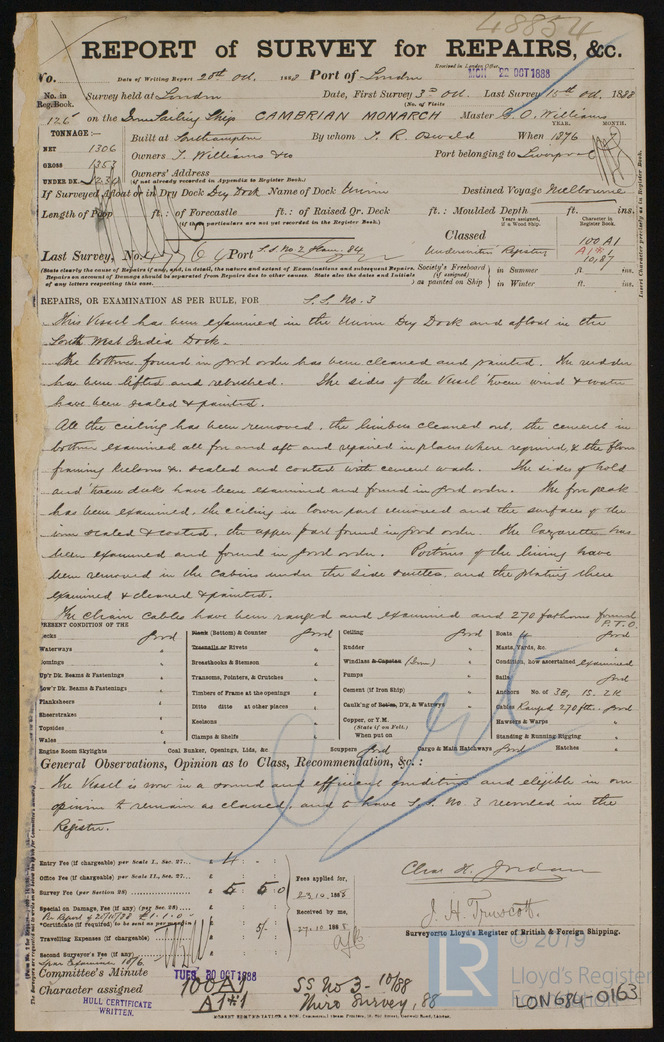 48854
REPORT of SURVEY for REPAIRS, &c.
No. Date of Writing Report 20th Oct. 1888 Port of London
Received in London Office MON 22 OCT 1888
No. in Reg. Book. Survey held at London Date, First Survey 3d Oct. Last Survey 15th Oct. 1888
(No. of Visits
on the Iron Sailing Ship CAMBRIAN MONARCH Master O. Williams
TONNAGE:— YEAR. MONTH.
Built at Southampton By whom T. R. Oswald When 1876
NET 1306
GROSS 1353
Owners T. Williams & Co Port belonging to Liverpool
UNDER DK. 1230
Owners' Address
(if not already recorded in Appendix to Register Book.)
If Surveyed Afloat or in Dry Dock Dry Dock Name of Dock Union Destined Voyage Melbourne
Length of Poop ft.: of Forecastle ft.: of Raised Qr. Deck ft.: Moulded Depth ft. ins.
(if the particulars are not yet recorded in the Register Book.)
Years assigned, if a Wood Ship. Character in Register Book.
Classed 100 A1
Last Survey, No. Port Underwriters Registry 10,87
(State clearly the cause of Repairs if any, and, in detail, the nature and extent of Examinations and subsequent Repairs.
Repairs on account of Damage should be separated from Repairs due to other causes. State also the dates and Initials
of any letters respecting this case.
Society's Freeboard (if assigned) as painted on Ship in Summer ft. ins.
in Winter ft. ins.
REPAIRS, OR EXAMINATION AS PER RULE, FOR S.S. No. 3
This Vessel has been examined in the Union Dry Dock and afloat in the
South West India Dock.
The bottom found in good order has been cleaned and painted. The rudder
has been lifted and rebushed. The sides of the Vessel 'tween wind & water
have been scaled & painted.
All the ceiling has been removed, the limbers cleaned out, the cement in
bottom examined all fore and aft and repaired in places where required, & the floors
framing keelsons &c. scaled and coated with cement wash. The sides of hold
and 'tween decks have been examined and found in good order. The fore peak
has been examined, the ceiling in lower part removed and the surfaces of the
iron scaled & coated, the upper part found in good order. The lazarette has
been examined and found in good order. Portions of the lining have
been removed in the cabins under the side scuttles, and the plating there
examined & cleaned & painted.
The chain cables have been ranged and examined and 270 fathoms found
P.T.O.
PRESENT CONDITION OF THE
Decks good
Waterways
Comings
Up'r Dk. Beams & Fastenings
Low'r Dk. Beams & Fastenings
Planksheers
Sheerstrakes
Topsides
Wales
Engine Room Skylights
Plank (Bottom) & Counter good
Treenails or Rivets
Breasthooks & Stemson
Transoms, Pointers, & Crutches
Timbers of Frame at the openings
Ditto ditto at other places
Keelsons
Clamps & Shelfs
Coal Bunker, Openings, Lids, &c.
Ceiling good
Rudder
Windlass & Capstan (Iron)
Pumps
Cement (if Iron Ship)
Caulk'ng of Bottm, D'k, & Waterways
Copper, or Y.M. (State if on Felt.)
When put on
Scuppers good Cargo & Main Hatchways good Hatches
Boats 4 good
Masts, Yards, &c.
Condition, how ascertained examined
Sails good
Anchors No. of 3B, 1S. 2K
Cables Ranged 270 fths. good
Hawsers & Warps
Standing & Running Rigging
General Observations, Opinion as to Class, Recommendation, &c.:
The Vessel is now in a sound and efficient condition and eligible in our
opinion to remain as classed, and to have S.S. No. 3 recorded in the
Register.
Entry Fee (if chargeable) per Scale I., Sec. 27... £ 4 : - : -
Office Fee (if chargeable) per Scale II., Sec. 27...
Survey Fee (per Section 28) £ 5 5 0
Special on Damage, Fee (if any) (per Sec. 28)
Certificate (if required) to be sent as per margin 5/-
Travelling Expenses (if chargeable)
Second Surveyor's Fee (if any)
Fees applied for, 23.10.1888
Received by me, 27.10.1888
Chas. H. Jordan
J. H. Truscott.
Surveyor to Lloyd's Register of British & Foreign Shipping.
Committee's Minute TUES. 30 OCT 1888
Character assigned 100A1
SS No 3 - 10/88
HULL CERTIFICATE WRITTEN.
© 2019
LR Lloyd's Register Foundation
LON684-0163